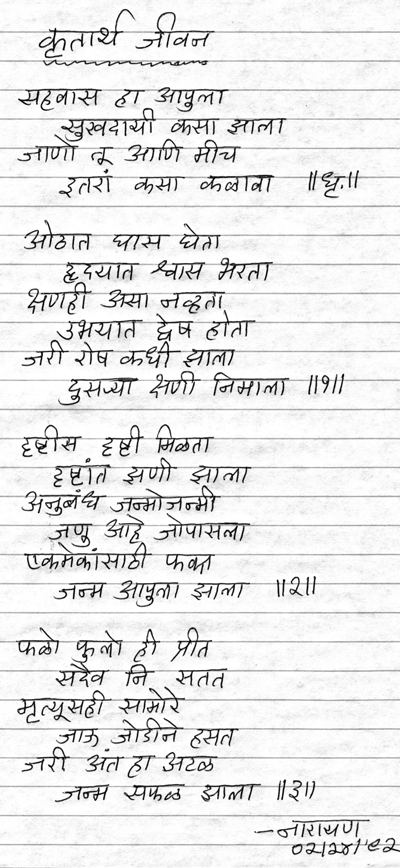 कृतार्थ जीवन
सहवास हा आपुला
सुखदायी कसा झाला
जाणो तू आणि मीच
इतरां कसा कळावा ॥धृ.॥
ओठात घास घेता
हृदयात श्वास भरता
क्षणही असा नव्हता
उभयात द्वेष होता
जरी रोष कधी झाला
दुसऱ्या क्षणी निमाला ॥१॥
दृष्टीस दृष्टी मिळता
दृष्टांत झणी झाला
अनुबंध जन्मोजन्मी
जणु आहे जोपासला
एकमेकांसाठी फक्त
जन्म आपुला झाला ॥२॥
फळो फुलो ही प्रीत
सदैव नि सतत
मृत्यूसही सामोरे
जाऊ जोडीने हसत
जरी अंत हा अटळ
जन्म सफळ झाला ॥३॥
-नारायण